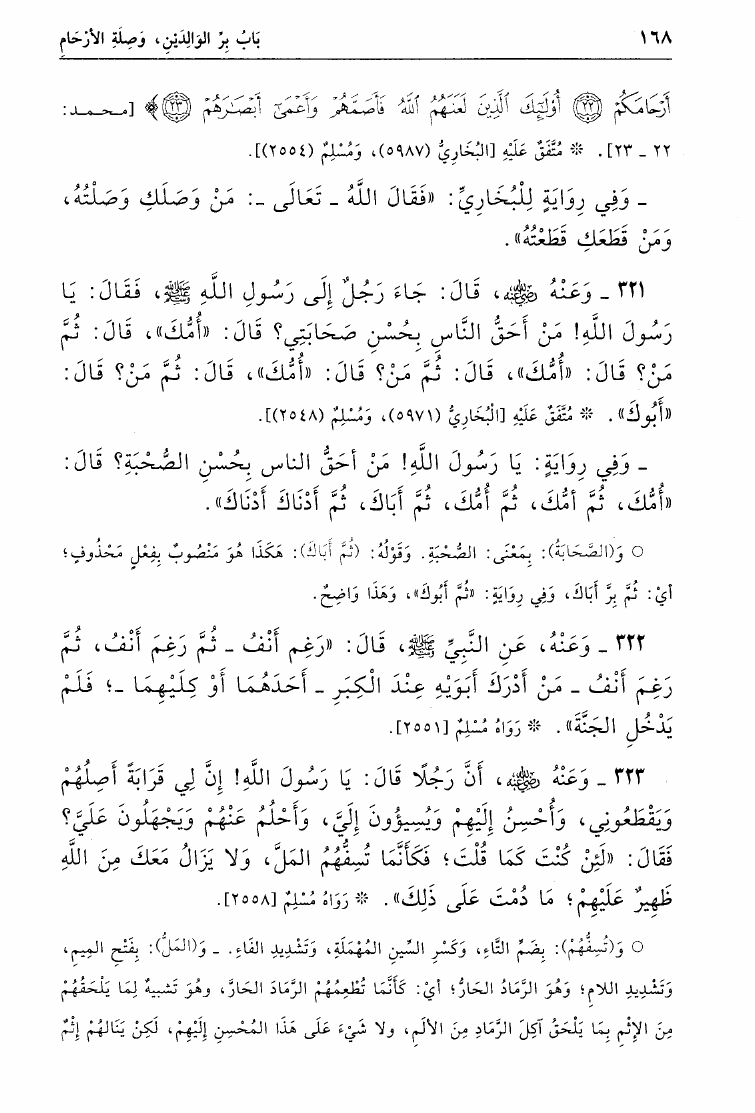 ١٦٨ بَابُ بِرِّ الوَالِدَيْنِ، وَصِلَةِ الأَرْحَامِ
أَرْحَامَكُمْ ﴿٢٢﴾ أُوْلَٰٓئِكَ ٱلَّذِينَ لَعَنَهُمُ ٱللَّهُ فَأَصَمَّهُمْ وَأَعْمَىٰٓ أَبْصَٰرَهُمْ ﴿٢٣﴾﴾ [محمد:
٢٢ ـ ٢٣]. * مُتَّفَقٌ عَلَيْهِ [البُخَارِيُّ (٥٩٨٧)، وَمُسْلِمٌ (٢٥٥٤)].
ـ وَفِي رِوَايَةٍ لِلْبُخَارِيِّ: «فَقَالَ اللَّهُ ـ تَعَالَى ـ: مَنْ وَصَلَكِ وَصَلْتُهُ،
وَمَنْ قَطَعَكِ قَطَعْتُهُ».
٣٢١ ـ وَعَنْهُ رضي الله عنه، قَالَ: جَاءَ رَجُلٌ إِلَى رَسُولِ اللَّهِ ﷺ، فَقَالَ: يَا
رَسُولَ اللَّهِ! مَنْ أَحَقُّ النَّاسِ بِحُسْنِ صَحَابَتِي؟ قَالَ: «أُمُّكَ»، قَالَ: ثُمَّ
مَنْ؟ قَالَ: «أُمُّكَ»، قَالَ: ثُمَّ مَنْ؟ قَالَ: «أُمُّكَ»، قَالَ: ثُمَّ مَنْ؟ قَالَ:
«أَبُوكَ». * مُتَّفَقٌ عَلَيْهِ [الْبُخَارِيُّ (٥٩٧١)، وَمُسْلِمٌ (٢٥٤٨)].
ـ وَفِي رِوَايَةٍ: يَا رَسُولَ اللَّهِ! مَنْ أحَقُّ الناس بِحُسْنِ الصُّحْبَةِ؟ قَالَ:
«أُمُّكَ، ثُمَّ أمُّكَ، ثُمَّ أُمُّكَ، ثُمَّ أَبَاكَ، ثُمَّ أدْنَاكَ أدْنَاكَ».
○ وَ(الصَّحَابَةُ): بِمَعْنَى: الصُّحْبَةِ. وَقَوْلُهُ: (ثُمَّ أَبَاكَ): هَكَذَا هُوَ مَنْصُوبٌ بِفِعْلٍ مَحْذُوفٍ؛
أيْ: ثُمَّ بِرَّ أَبَاكَ، وَفِي رِوَايَةٍ: «ثُمَّ أَبُوكَ»، وَهَذَا وَاضِحٌ.
٣٢٢ ـ وَعَنْهُ، عَنِ النَّبِيِّ ﷺ، قَالَ: «رَغِم أَنْفُ ـ ثُمَّ رَغِمَ أَنْفُ، ثُمَّ
رَغِمَ أَنْفُ ـ مَنْ أَدْرَكَ أَبَوَيْهِ عِنْدَ الْكِبَرِ ـ أَحَدَهُمَا أَوْ كِلَيْهِمَا ـ؛ فَلَمْ
يَدْخُلِ الجَنَّةَ». * رَوَاهُ مُسْلِمٌ [٢٥٥١].
٣٢٣ ـ وَعَنْهُ رضي الله عنه، أَنَّ رَجُلًا قَالَ: يَا رَسُولَ اللَّهِ! إِنَّ لِي قَرَابَةً أَصِلُهُمْ
وَيَقْطَعُونِي، وَأُحْسِنُ إِلَيْهِمْ وَيُسِيؤُونَ إِلَيَّ، وَأَحْلُمُ عَنْهُمْ وَيَجْهَلُونَ عَلَيَّ؟
فَقَالَ: «لَئِنْ كُنْتَ كَمَا قُلْتَ؛ فَكَأَنَّمَا تُسِفُّهُمُ المَلَّ، وَلا يَزَالُ مَعَكَ مِنَ اللَّهِ
ظَهِيرٌ عَلَيْهِمْ؛ مَا دُمْتَ عَلَى ذَلِكَ». * رَوَاهُ مُسْلِمٌ [٢٥٥٨].
○ وَ(تُسِفُّهُمْ): بِضَمِّ التَّاءِ، وَكَسْرِ السِّينِ المُهْمَلَةِ، وَتَشْدِيدِ الفَاءِ. ـ وَ(المَلُّ): بِفَتْحِ المِيمِ،
وَتَشْدِيدِ اللامِ؛ وَهُوَ الرَّمَادُ الحَارُّ؛ أيْ: كَأَنَّمَا تُطْعِمُهُمْ الرَّمَادَ الحَارَّ، وهُوَ تَشبيهٌ لِمَا يَلْحَقُهُمْ
مِنَ الإِثْمِ بِمَا يَلْحَقُ آكِلَ الرَّمَادِ مِنَ الألَمِ، ولا شَيْءَ عَلَى هَذَا المُحْسِنِ إِلَيْهِمْ، لَكِنْ يَنَالهُمْ إِثْمٌ